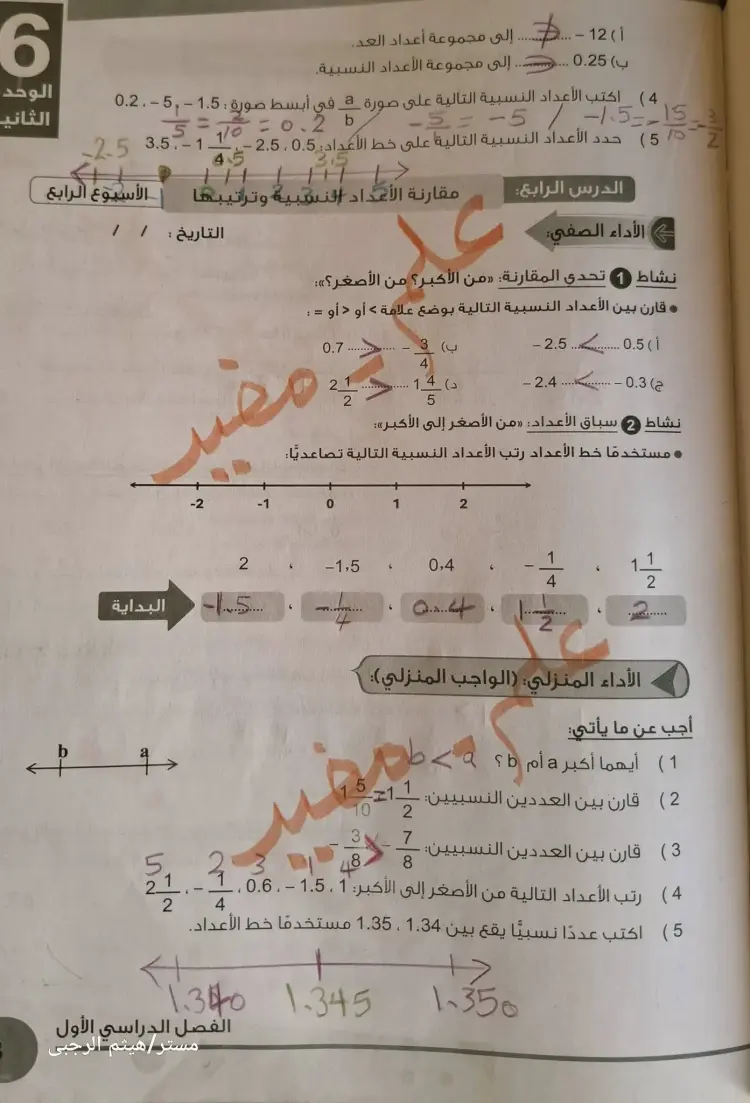 6
الوحد
الثاني
أ ) 12 – ............ إلى مجموعة أعداد العد.
ب) 0.25 ............ إلى مجموعة الأعداد النسبية.
4 ) اكتب الأعداد النسبية التالية على صورة a/b في أبسط صورة : 1.5 – ، 5 – ، 0.2
1/5 = 2/10 = 0.2   -5/1 = -5   -1.5 = -15/10 = -3/2
5 ) حدد الأعداد النسبية التالية على خط الأعداد: 0.5 ، 2.5 – ، 1 1/4 – ، 3.5
-2.5
الدرس الرابع: مقارنة الأعداد النسبية وترتيبها الأسبوع الرابع
الأداء الصفي: التاريخ : / /
نشاط 1 تحدي المقارنة: «من الأكبر؟ من الأصغر؟»:
• قارن بين الأعداد النسبية التالية بوضع علامة > أو < أو = :
أ ) 0.5 ....<.... 2.5 – ب) 3/4 – ....>.... 0.7
ج) 0.3 – ....<.... 2.4 – د) 1 4/5 ....>.... 2 1/2
نشاط 2 سباق الأعداد: «من الأصغر إلى الأكبر»:
• مستخدمًا خط الأعداد رتب الأعداد النسبية التالية تصاعديًّا:
-2 -1 0 1 2
1 1/2 ، – 1/4 ، 0,4 ، –1,5 ، 2
البداية -1.5 ، -1/4 ، 0.4 ، 1 1/2 ، 2
علم - مفيد
الأداء المنزلي: (الواجب المنزلي):
أجب عن ما يأتي:
b a
1 ) أيهما أكبر a أم b ؟ b < a
2 ) قارن بين العددين النسبيين: 1 1/2 = 1 5/10
3 ) قارن بين العددين النسبيين: – 7/8 > – 3/8
5 2 3 1 4
4 ) رتب الأعداد التالية من الأصغر إلى الأكبر: 1 ، 1.5 – ، 0.6 ، – 1/4 ، 2 1/2
5 ) اكتب عددًا نسبيًّا يقع بين 1.34 ، 1.35 مستخدمًا خط الأعداد.
1.340 1.345 1.350
علم - مفيد
الفصل الدراسي الأول
مستر/هيثم الرجبى